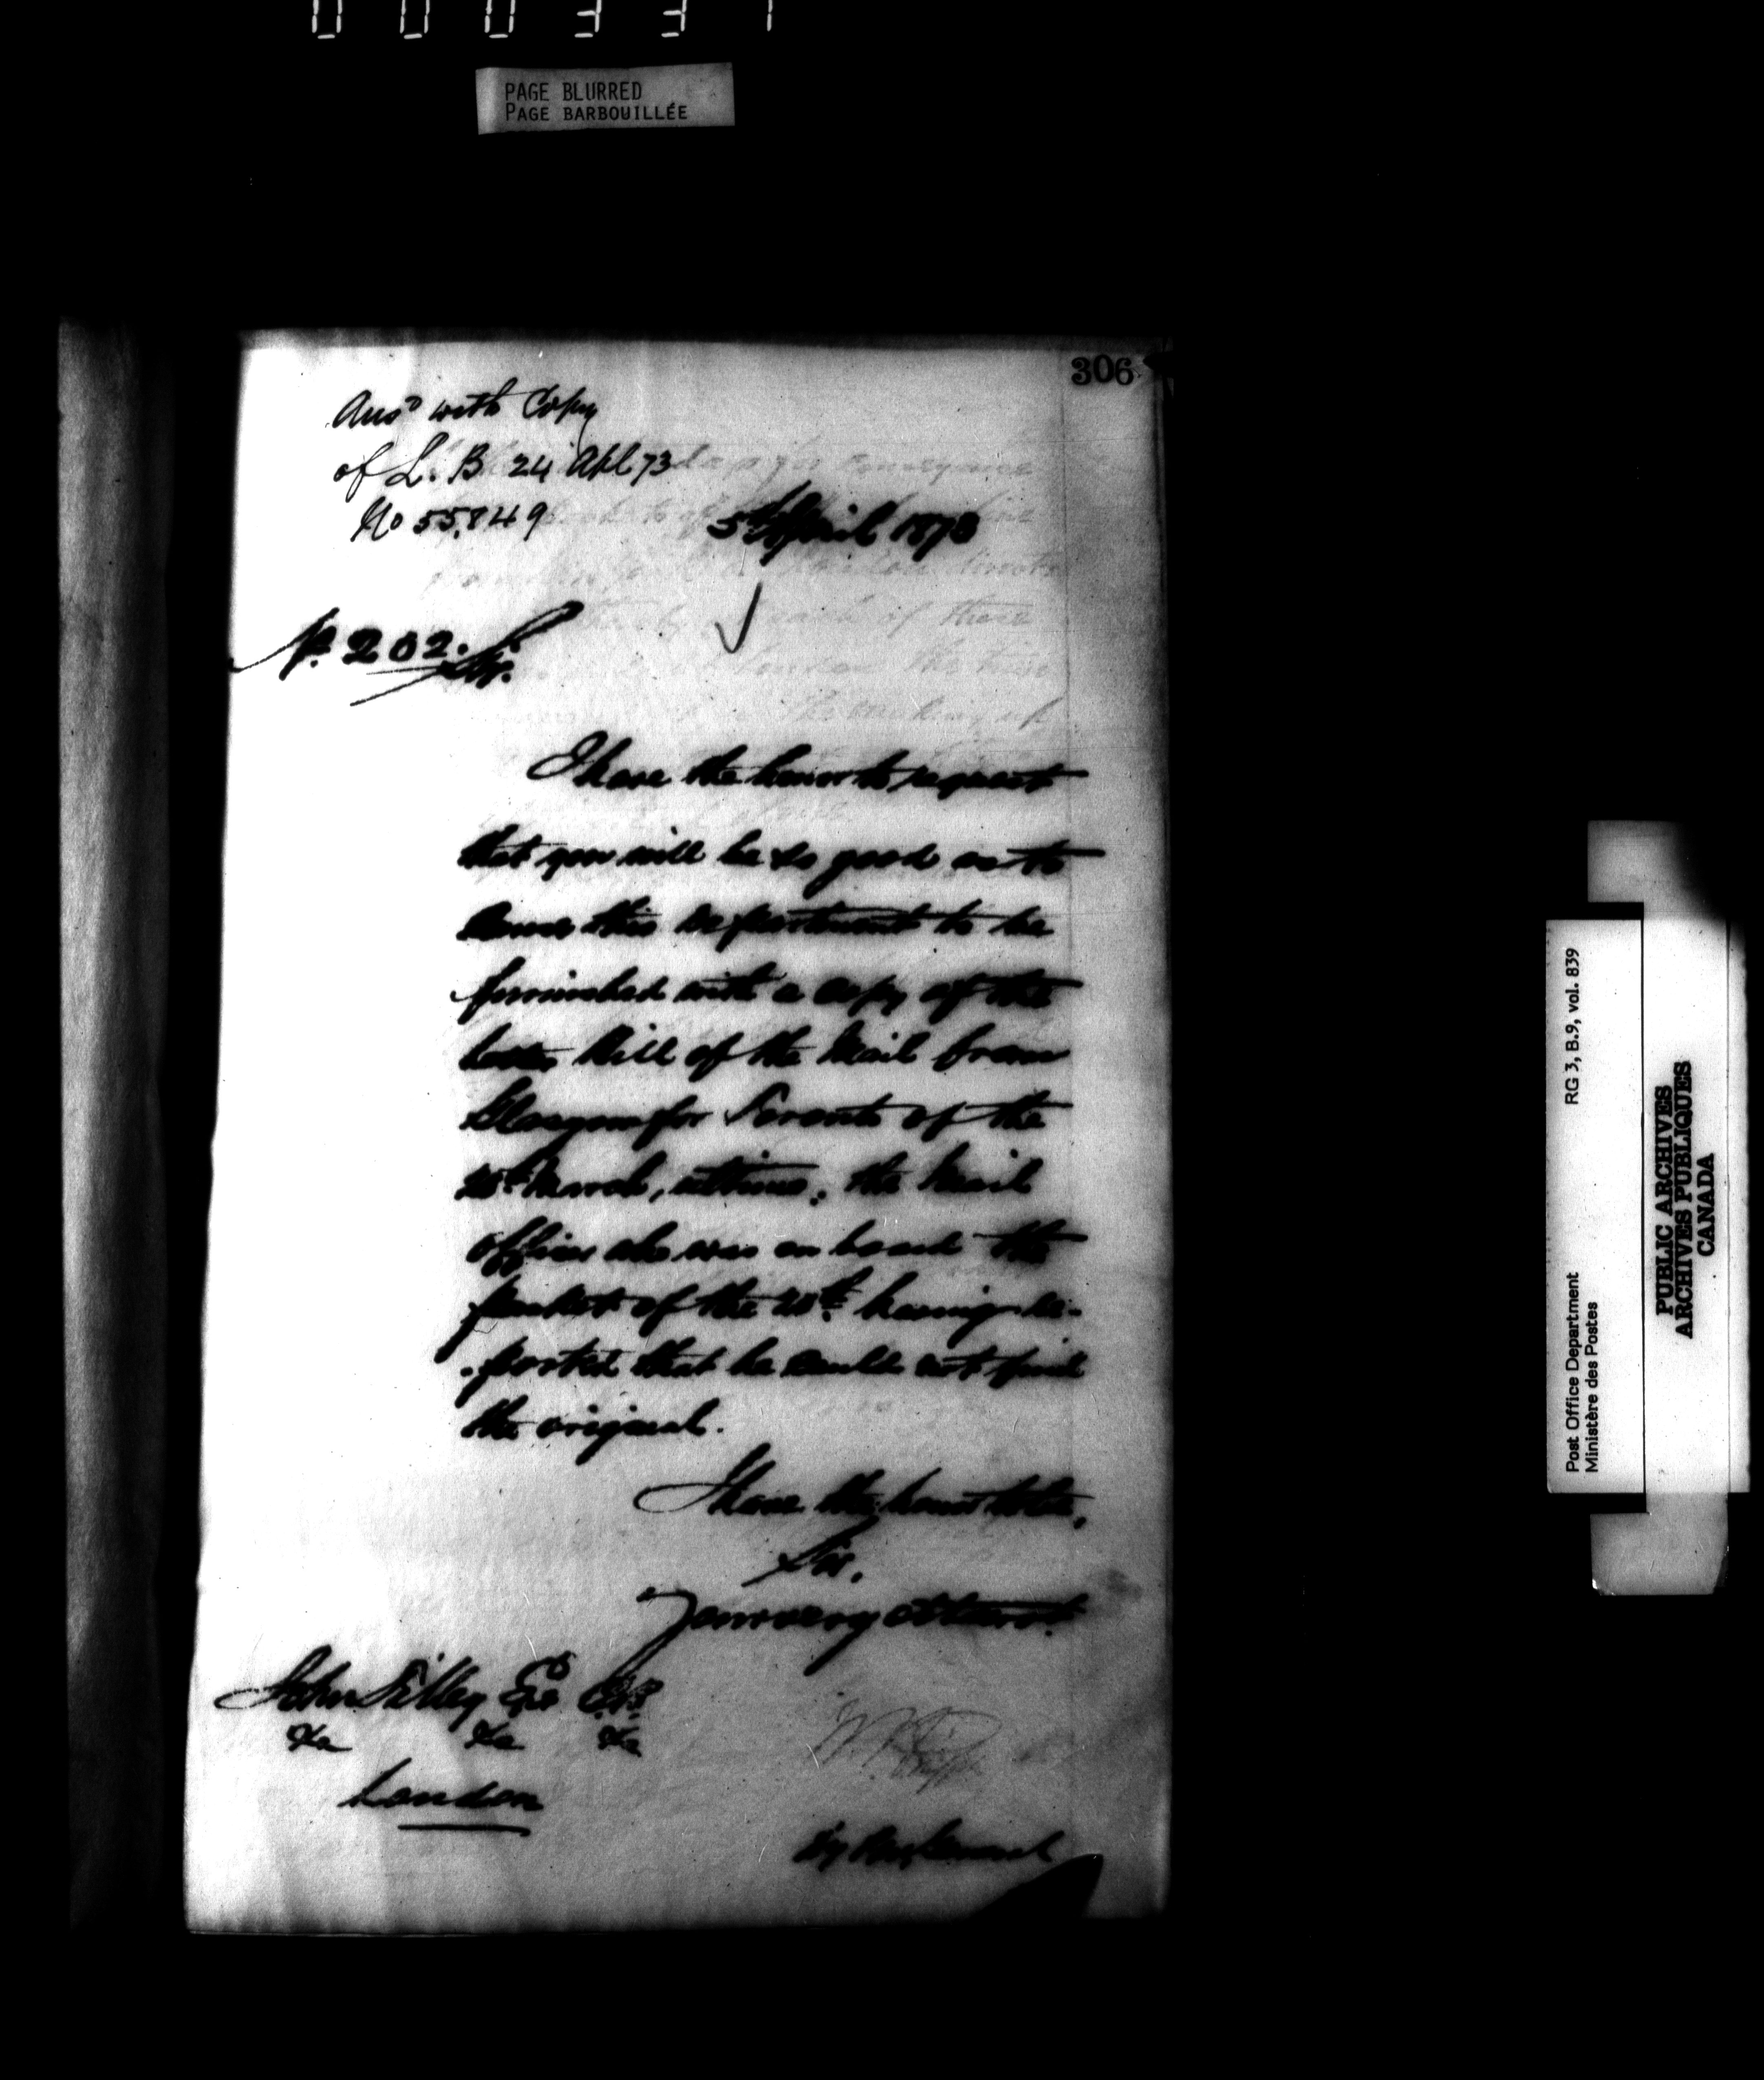 000331
PAGE BLURRED
PAGE BARBOUILLÉE
306
Ansd with Copy
of L. B. 24 Apl 73
No 55,849
5th April 1873
202.
Sir.
I have the honor to request
that you will be so good as to
cause this department to be
furnished with a copy of the
Letter Bill of the Mail from
Glasgow for Toronto of the
March, ultimo; the Mail
Officer who was on board the
packet of the having re-
-ported that he could not find
the original.
I have the honor to be,
Sir,
Your very obt servt.
John Tilley Esq C.B.
&c &c &c
London
Dy
RG 3, B.9, vol. 839
Post Office Department
Ministère des Postes
PUBLIC ARCHIVES
ARCHIVES PUBLIQUES
CANADA